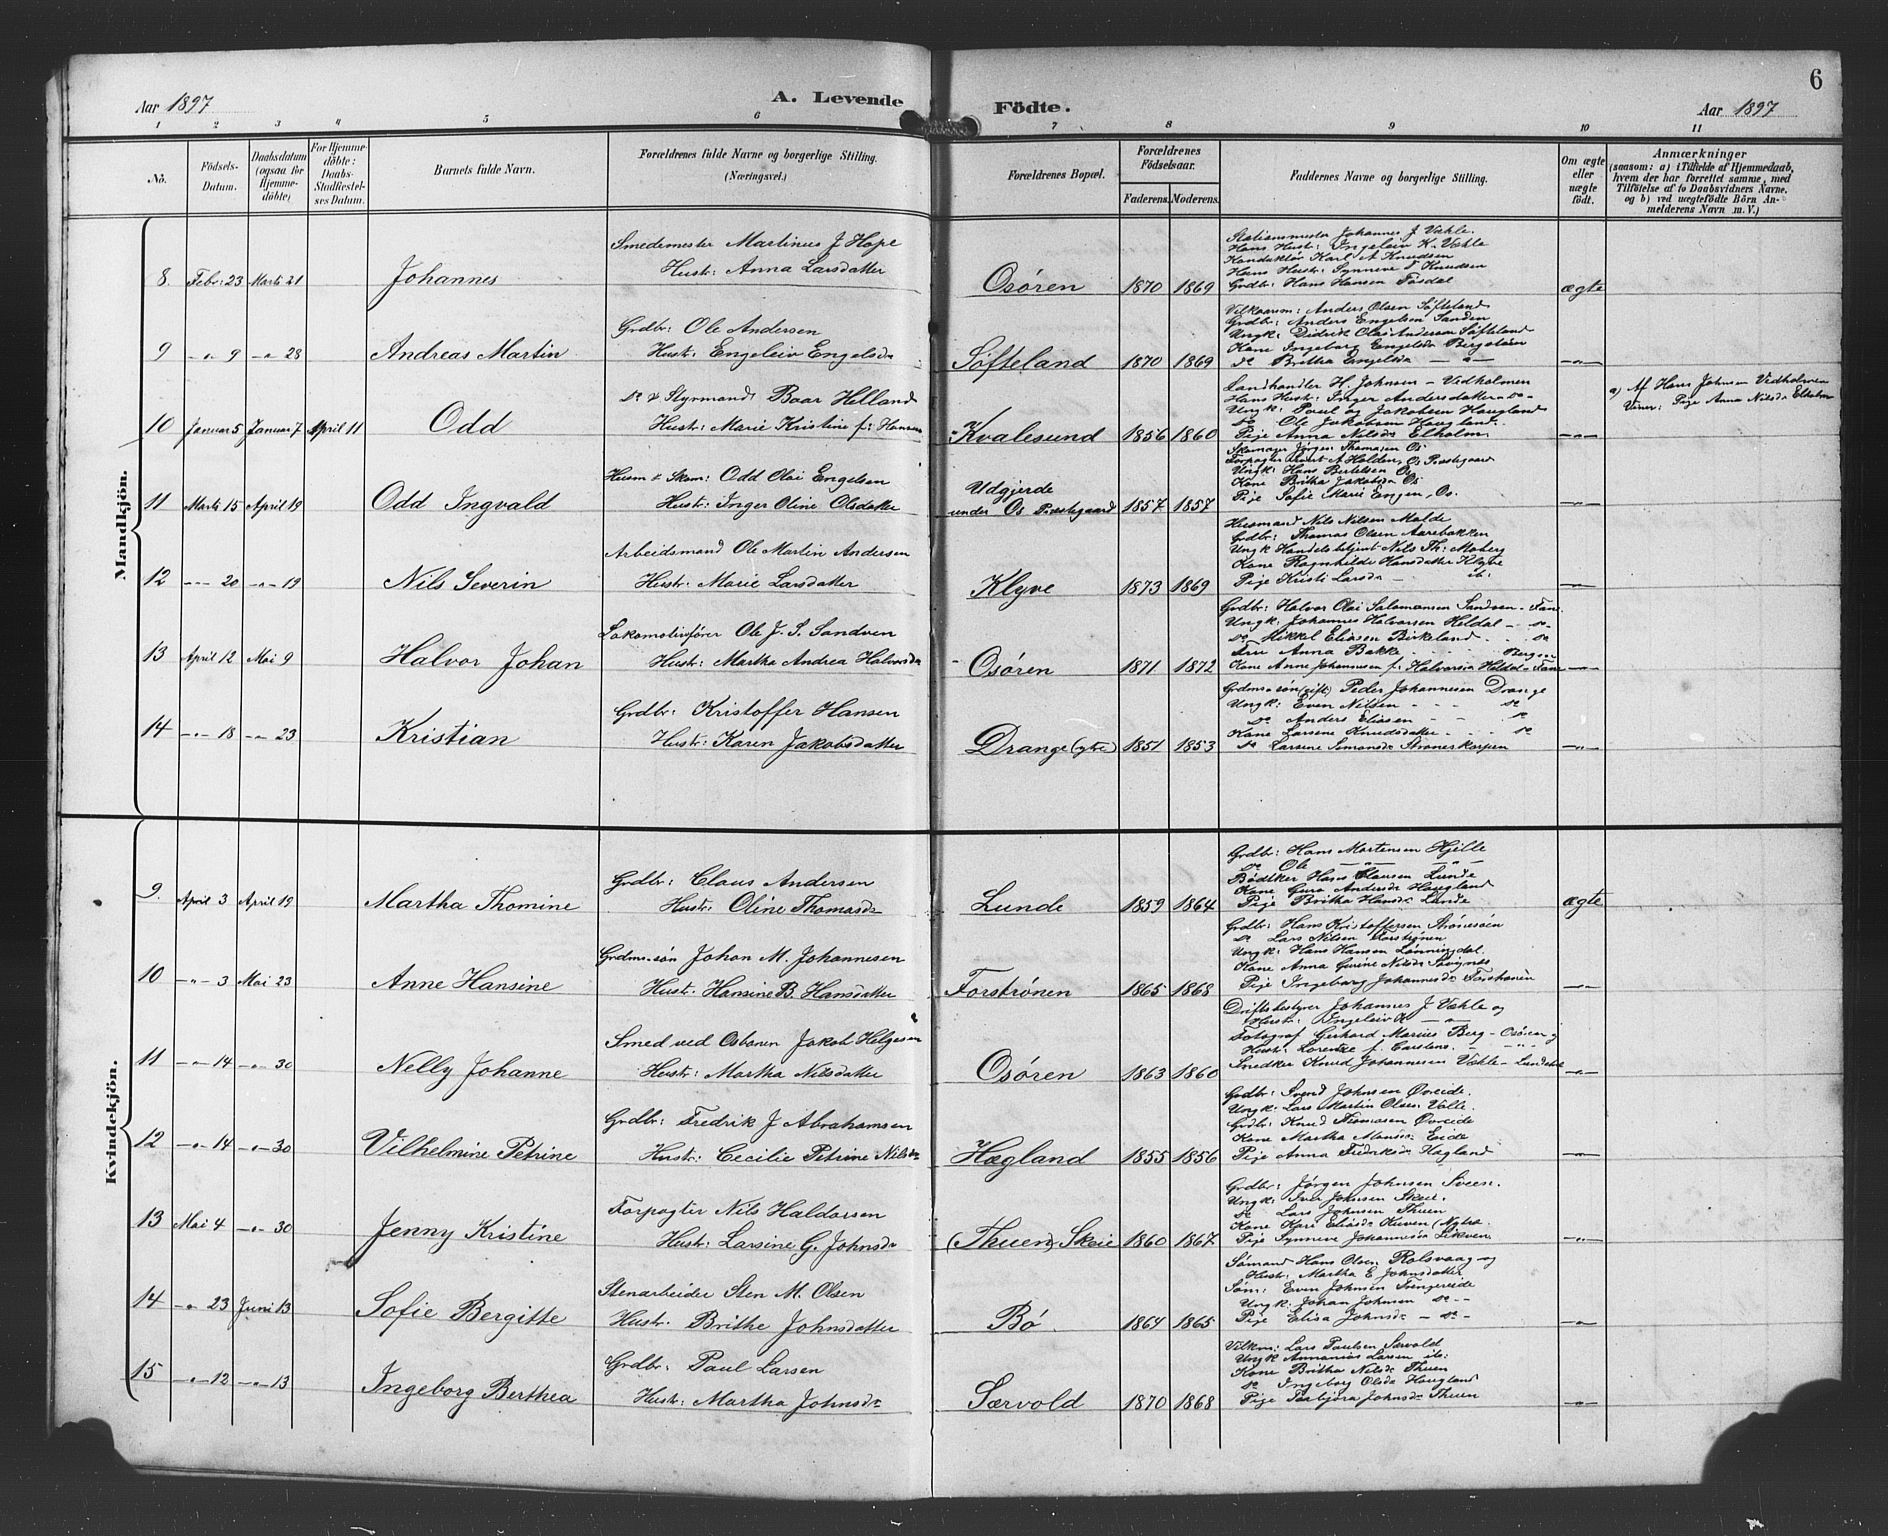 6
Aar 1897
A. Levende Födte.
Aar 1897
1 2 3 4 5 6 7 8 9 10 11
No.
Födsels-
Datum.
Daabsdatum
(ogsaa for
Hjemme-
döbte)
For Hjemme-
døbte:
Daabs-
Stadfæstel-
ses Datum.
Barnets fulde Navn.
Forældrenes fulde Navne og borgerlige Stilling.
(Næringsvei.)
Forældrenes Bopæl.
Forældrenes
Födselsaar.
Faderens. Moderens.
Faddernes Navne og borgerlige Stilling.
Om ægte
eller
uægte
født.
Anmærkninger
(saasom: a) i Tilfælde af Hjemmedaab,
hvem der har forrettet samme, med
Tilföielse af to Daabsvidners Navne,
og b) ved uægtefödte Börn An-
melderens Navn m. V.)
Mandkjön.
8. Febr: 23 Marts 21 Johannes
Smedemester Martinus J Hope
Hustr: Anna Larsdatter
Osøren 1870 1869
Stationsmester Johannes J Væhle.
Hans Hustr: Ingeleiv K. Væhle
Konduktör Karl A Knudsen
Hans Hustr: Synneve T Knudsen
Grdbr: Hans Hansen Tøsdal
ægte
9 -"- 9 -"- 28 Andreas Martin
Grdbr: Ole Andersen
Hustr: Engeleiv Engelsdr
Søfteland 1870 1869
Vilkaarsm: Anders Olsen Søfteland
Grdbr: Anders Engelsen Sanden
Ungk: Didrik Olai Andersen Søfteland
Kone Ingeborg Engelsdr
do Britha Engelsdr -"-
-"-
10 Januar 5 Januar 7 April 11 Odd
do & Styrmand Baar Helland
Hustr: Marie Kristine f: Hansen
Kvalesund 1856 1860
Landhandler H. Johnsen - Vedholmen
Hans Hustr: Inger Andersdatter -do-
Ungk: Paul og Jakobsen Haugland
do Ole Jakobsen Haugland.
Pige Anna Nilsdr Elholm
-"-
a) Af Hans Johnsen Vedholmen
Vidner: Pige Anna Nilsdr Elholm
11 Marts 15 April 19 Odd Ingvald
Husm & Skom: Odd Olai Engelsen
Hustr: Inger Oline Olsdatter
Udgjerde
under Os Præstegaard 1857 1857
Skomager Jörgen Thomasen Os
Forpagter A Holden, Os Præstegaard
Ungk: Hans Bertelsen Os
Kone Britha Jakobsdr Os
Pige Sofie Marie Engen, Os.
-"-
12 -"- 20 -"- 19 Nils Severin
Arbeidsmand Ole Martin Andersen
Hustr: Marie Larsdatter
Klyve 1873 1869
Husmand Nils Nilsen Molde
Grdbr: Thomas Olsen Aarebakken
Ungk Handelsbetjent Nils Th: Moberg
Kone Ragnhilde Hansdatter Klyve
Pige Kristi Larsdr - ib:
-"-
13 April 12 Mai 9 Halvor Johan
Lokomotivfører Ole J. S. Sandven
Hustr: Martha Andrea Halvorsdr
Osören 1871 1872
Grdbr: Halvor Olai Salamonsen Sandven - Fane
Ungk: Johannes Halvorsen Heldal - do
do Mikkel Eliasen Birkeland - do
Fru Anna Bakke - Bergen
Kone Anne Johannesen f: Halvorsen Heldal - Fane
-"-
14 -"- 18 -"- 23 Kristian
Grdbr: Kristoffer Hansen
Hustr: Karen Jakobsdatter
Drange (ytre) 1851 1853
Grdms-søn (gift) Peder Johannesen Drange
Ungk: Even Nilsen - do
do Anders Eliasen - do
Kone Larsine Knudsdatter - do
do Larsine Simonsdr
-"-
Kvindekjön.
9. April 3 April 19 Martha Thomine
Grdbr: Claus Andersen
Hustr: Oline Thomasdr
Lunde 1859 1864
Grdbr: Hans Mortensen Hjelle
do Ole -"- -"-
Bødtker Hans Clausen Lunde
Kone Guro Andersdr Haugland
Pige Britha Hansdr Lunde
ægte
10 -"- 3 Mai 23 Anne Hansine
Grdms.søn Johan M. Johannesen
Hustr. Hansine B. Hansdatter
Forstrónen 1865 1868
Grdbr: Hans Kristoffersen
do Lars Nilsen Forstrónen
Ungk: Hans Hansen Lønningdal
Kone Anna Gurine Nilsdr
Pige Ingeborg Johannesdr Forstronen
-"-
11 -"- 14 -"- 30 Nelly Johanne
Smed ved Osbanen Jakob Helgesen
Hustr: Martha Nilsdatter
Osören 1863 1860
Driftsbestyrer Johannes J Væhle og
Hustr: Ingeleiv K -"-
Fotograf Gerhard Marius Berg - Osören og
Hustr: Lorentze f. Carstens. -
Snedker Knud Johannesen Væhle -
-"-
12 -"- 14 -"- 30 Vilhelmine Petrine
Grdbr: Fredrik J Abrahamsen
Hustr: Cecilie Petrine Nilsdr
Hægland 1855 1856
Grdbr: Svend Johnsen Øvreide.
Ungk: Lars Martin Olsen Valle.
Grdbr: Knud Thomasen Øvreide
Kone Martha Monsdr Eide
Pige Anna Fredriksdr Hægland
-"-
13 Mai 4 -"- 30 Jenny Kristine
Forpagter Nils Haldorsen
Hustr: Larsine G. Johnsdr
(Thuen) Skeie 1860 1867
Grdbr: Jørgen Johnsen Sveen.
Ungk: Iver Johnsen Skeie.
do Lars Johnsen Thuen
Kone Kari Eliasdr
Pige Synneve Johannesdr
-"-
14 -"- 23 Juni 13 Sofie Bergitte
Stenarbeider Sten M. Olsen
Hustr. Brithe Johnsdatter
Bø 1864 1865
Sømand Hans Olsen Rolsvaag og
Hustr: Martha E Johnsdatter
Søm: Even Johnsen Tungereide
Ungk: Johan Johnsen do -
Pige Elisa Johnsdr - do -
-"-
15 -"- 12 -"- 13 Ingeborg Berthea
Grdbr: Paul Larsen
Hustr: Martha Johnsdr
Særvold 1870 1868
Vilkm: Lars Paulsen Særvold
Ungk Annanias Larsen ib:
Kone Britha Nilsdr Thuen
do Ingeborg Olsdr Haugland
Pige Torbjøra Johnsdr Thuen
-"-